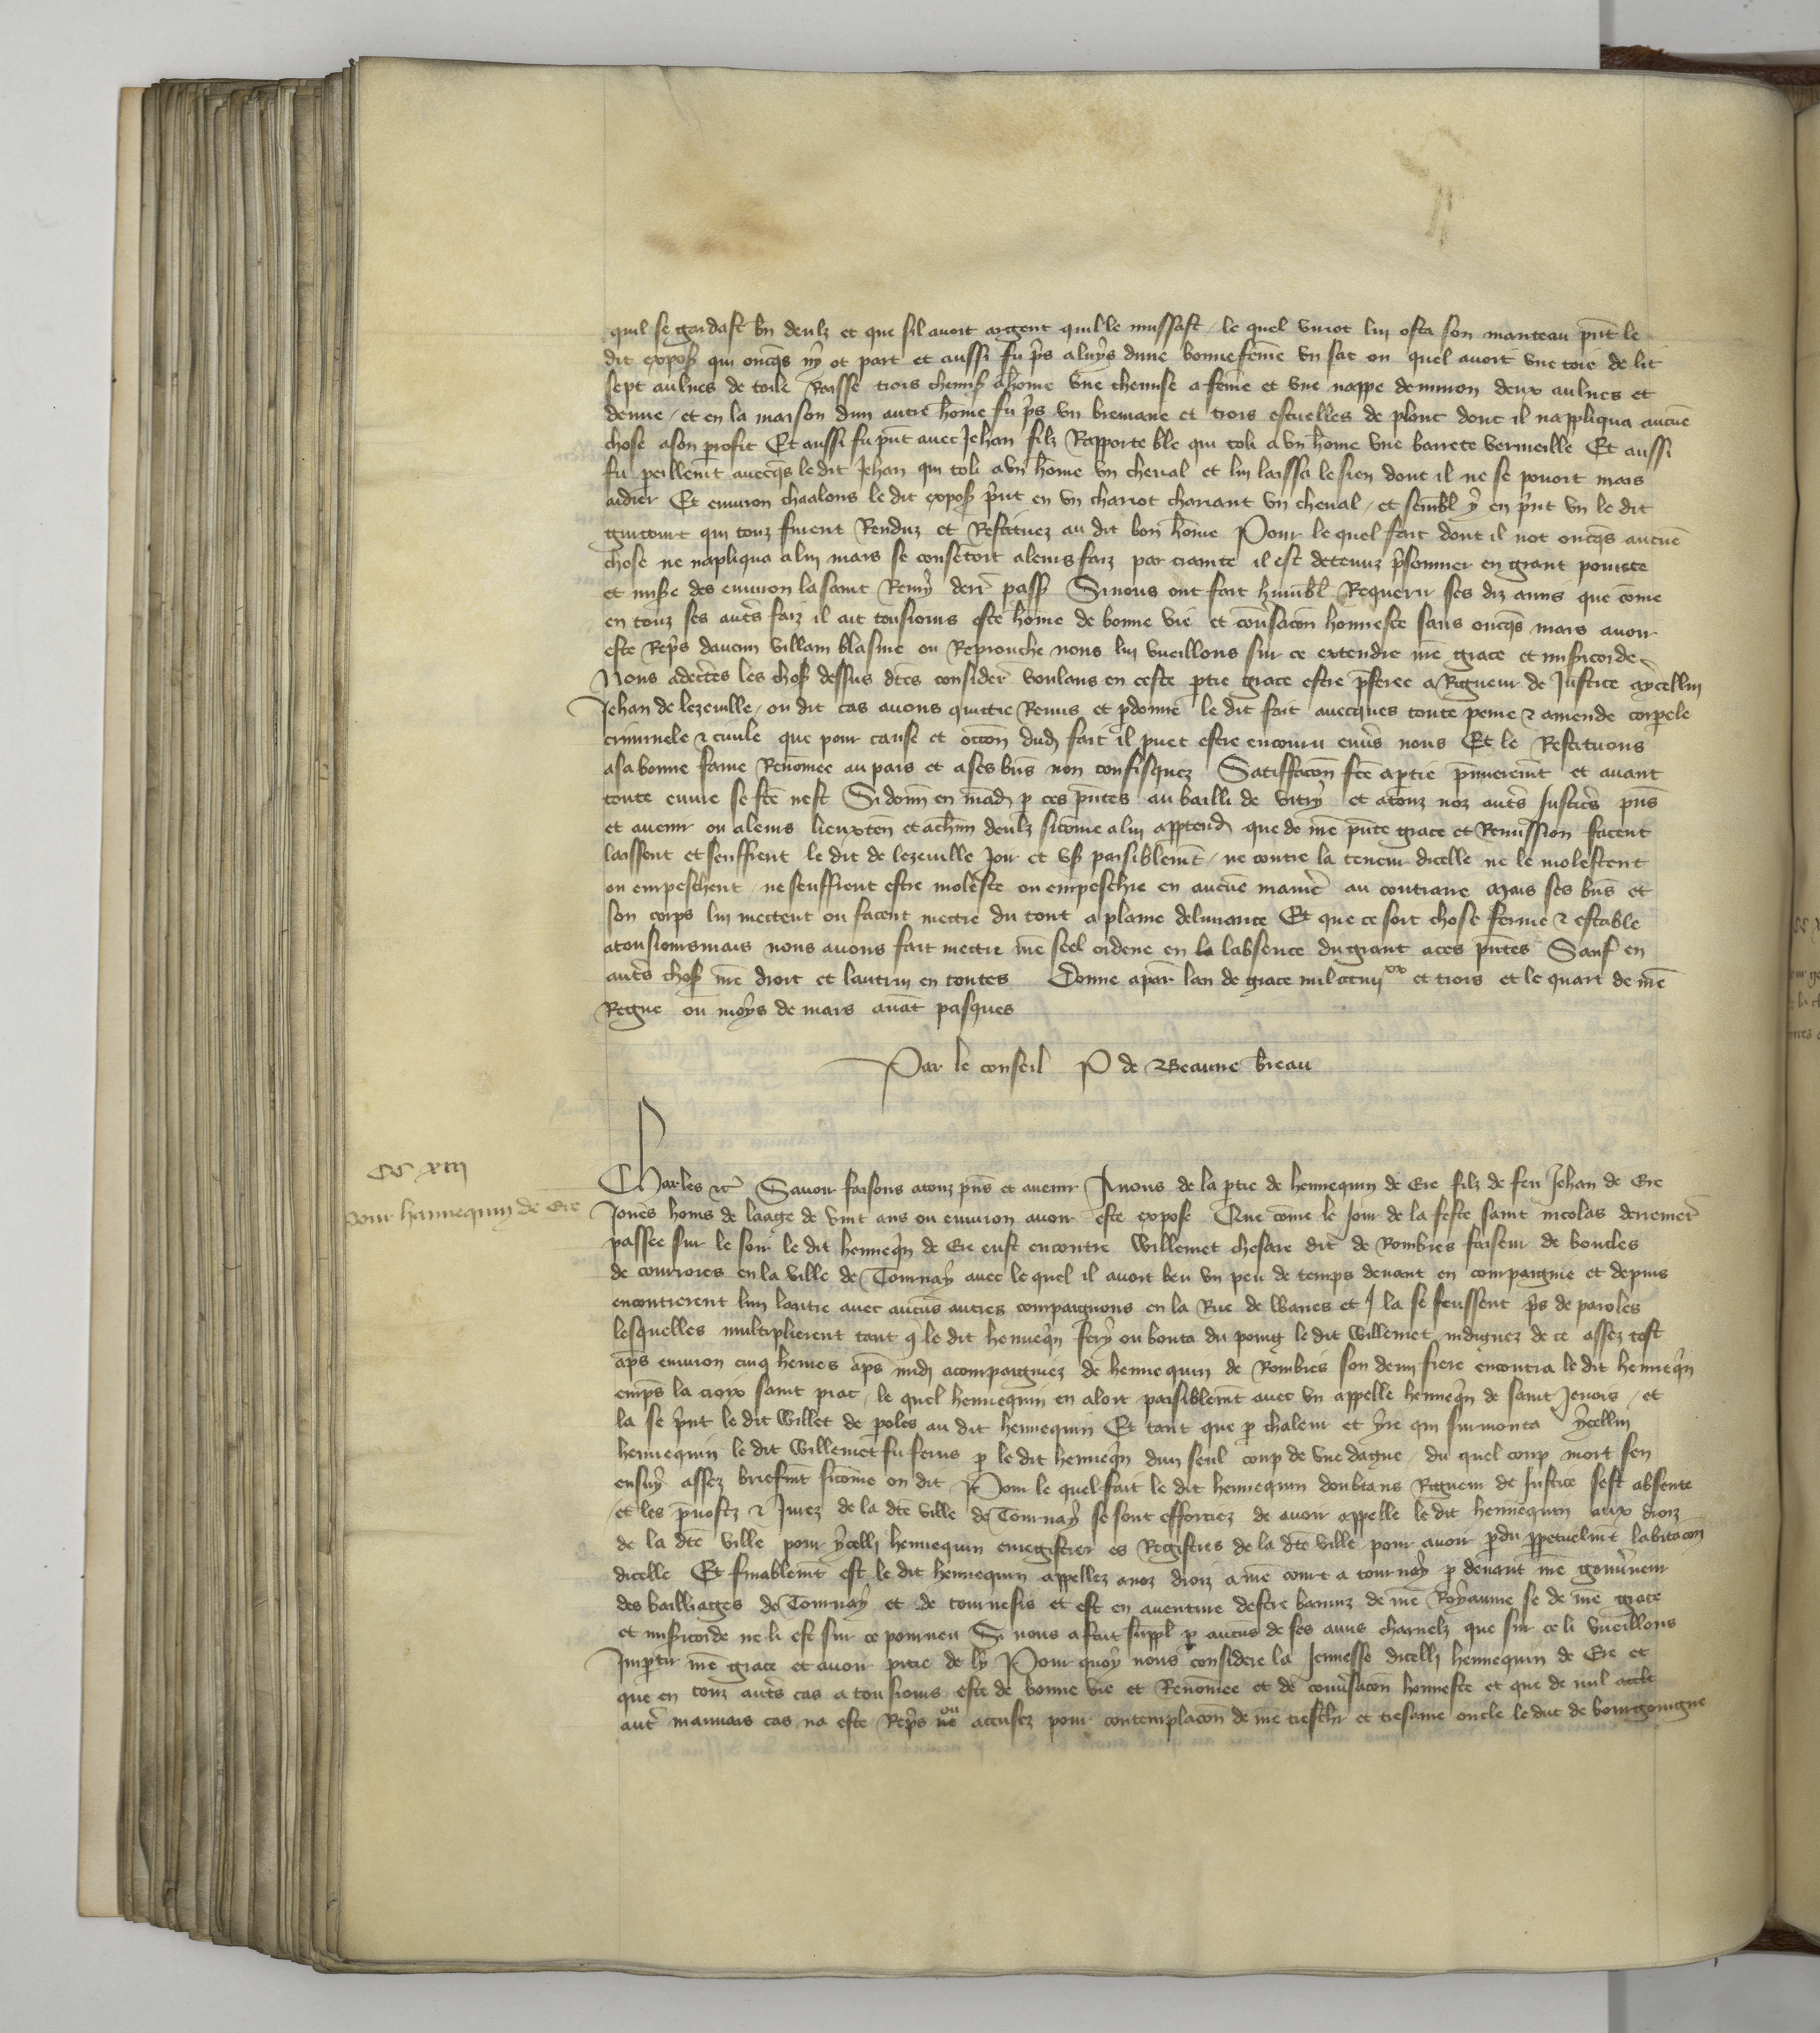 quil se gardast bn deulz et que sil avoit argent quil le mussast / le quel viriot lui osta son manteau pnt le
dit expos qui oncqs ny ot part et aussi fu prs a luys dune bonne feme vn sac ou quel avoit vne toie de lit
sept aulnes de toile Raisse trois chemis a home vne chemise a feme et vne nappe denviron deux aulnes et
demie / et en la maison dun autre home fu prs vn et trois escuelles de plont dont il nappliqua aucune
chose a son profit Et aussi fu pnt avec Jehan filz Rapporte ble qui toli a vn home vne barrete vermeille Et aussi
fu avecqs le dit Jehan qui toli a vn home vn cheval et lui laissa le sien dont il ne se povoit mais
aidier Et environ chaalons le dit expos prit en vn chariot chariant vn cheval / et sembl y en prit vn le dit
qui touz furent Renduz et Restituez au dit bon home Pour le quel fait dont il not oncqs aucune
chose ne napliqua a lui mais se consetoit a leurs faiz par crainte il est detenuz prisonnier en grant povrete
et mise des environ la saint Remy derr pass Si nous ont fait humbl Requerir ses diz amis que come
en touz ses autrs faiz il ait tousiours este home de bonne vie et convsacon honneste sans oncqs mais avoir
este Reprs daucun villain blasme ou Reprouche nous lui vueillons sur ce extendre nre grace et misicorde
Nous adectes les chos dessus dtes consider voulans en ceste ptie grace estre pferee a Rigueur de Justice a ycellui
Jehan de lezeville / ou dit cas avons quittie Remis et pdonne le dit fait avecques toute peine & amende corpele
criminele & civile que pour cause et occon dud fait il puet estre encouru envs nous Et le Restituons
a sa bonne fame Renomee au pais et a ses bns non confisquez Satiffacon fte a ptie pmieremt et avant
toute euvre se fte nest Si donn en mad p ces pntes au bailli de vitry et a touz noz autrs Justics pns
et avenir ou a leurs lieuxten et a chun deulz sicome a lui apptend que de nre pnte grace et Remission facent
laissent et seuffrent le dit de lezeville Joir et us paisiblemt / ne contre la teneur dicelle ne le molestent
ou empeschent / ne seuffrent estre moleste ou empeschie en aucune manie au contraire mais ses bns et
son corps lui mettent ou facent mettre du tout a plaine delivrance Et que ce soit chose ferme & estable
a tousioursmais nous avons fait mettre nre seel ordene en labsence du grant a ces pntes Sauf en
autrs chos nre droit et lautruy en toutes Donne a par lan de grace mil ccciiij xx et trois et le quart de nre
Regne ou moys de mars avat pasques
Par le conseil P de Beaune breau
CC xiij
pour hennequin de Ere
Charles &c Savoir faisons a touz pns et avenir A nous de la ptie de hennequin de Ere filz de feu Jehan de Ere
Jones homs de laage de vint ans ou environ avoir este expose Que come le Jour de la feste saint nicolas derrenier
passee sur le soir le dit henneqn de Ere eust encontre Willemet chesaie dit de Rombies faiseur de boucles
de courroies en la ville de Tournay avec le quel il avoit beu vn peu de temps devant en compaignie et depuis
encontrerent lun lautre avec aucuns autres compaignons en la Rue de Wanes et la se feussent prs de paroles
lesquelles multiplierent tant q le dit henneqn fery ou bouta du poing le dit Willemet indignez de ce assez tost
aps environ cinq heures aps mid acompaigniez de hennequin de Rombies son demi frere encontra le dit henneqn
emps la croix saint piat / le quel hennequin en aloit paisiblemt avec vn appelle henneqn de saint Jenois / et
la se prit le dit Willet de poles au dit hennequin Et tant que p chaleur et yre qui surmonta ycellui
hennequin le dit Willemet fu ferus p le dit henneqn dun seul coup de vne dague / du quel coup mort sen
ensuy assez briefmt sicome on dit Pour le quel fait le dit hennequin doubtans Rigueur de Justice sest absente
et les pvostz & Jurez de la dte ville de Tournay se sont efforciez de avoir appelle le dit hennequin aux droiz
de la dte ville pour ycelli hennequin enregistrer es Registres de la dte ville pour avoir pdu ppetuelmt labitacon
dicelle Et finablemt est le dit hennequin appellez a noz droiz a nre court a tournay p devant nre gouvneur
des bailliages de Tournay et de tournesis et est en aventure destre banniz de nre Royaume se de nre grace
et misicorde ne li est sur ce pourveu Si nous a fait suppl p aucuns de ses amis charnelz que sur ce li vueillons
Impartir nre grace et avoir pitie de ly Pour quoy nous considere la Jennesse dicelli hennequin de Ere et
que en touz autrs cas a tousiours este de bonne vie et Renomee et de convsacon honneste et que de nul
autr mauvais cas na este Reprs ne ou accusez pour contemplacon de nre treschr et tresame oncle le duc de bourgoingne